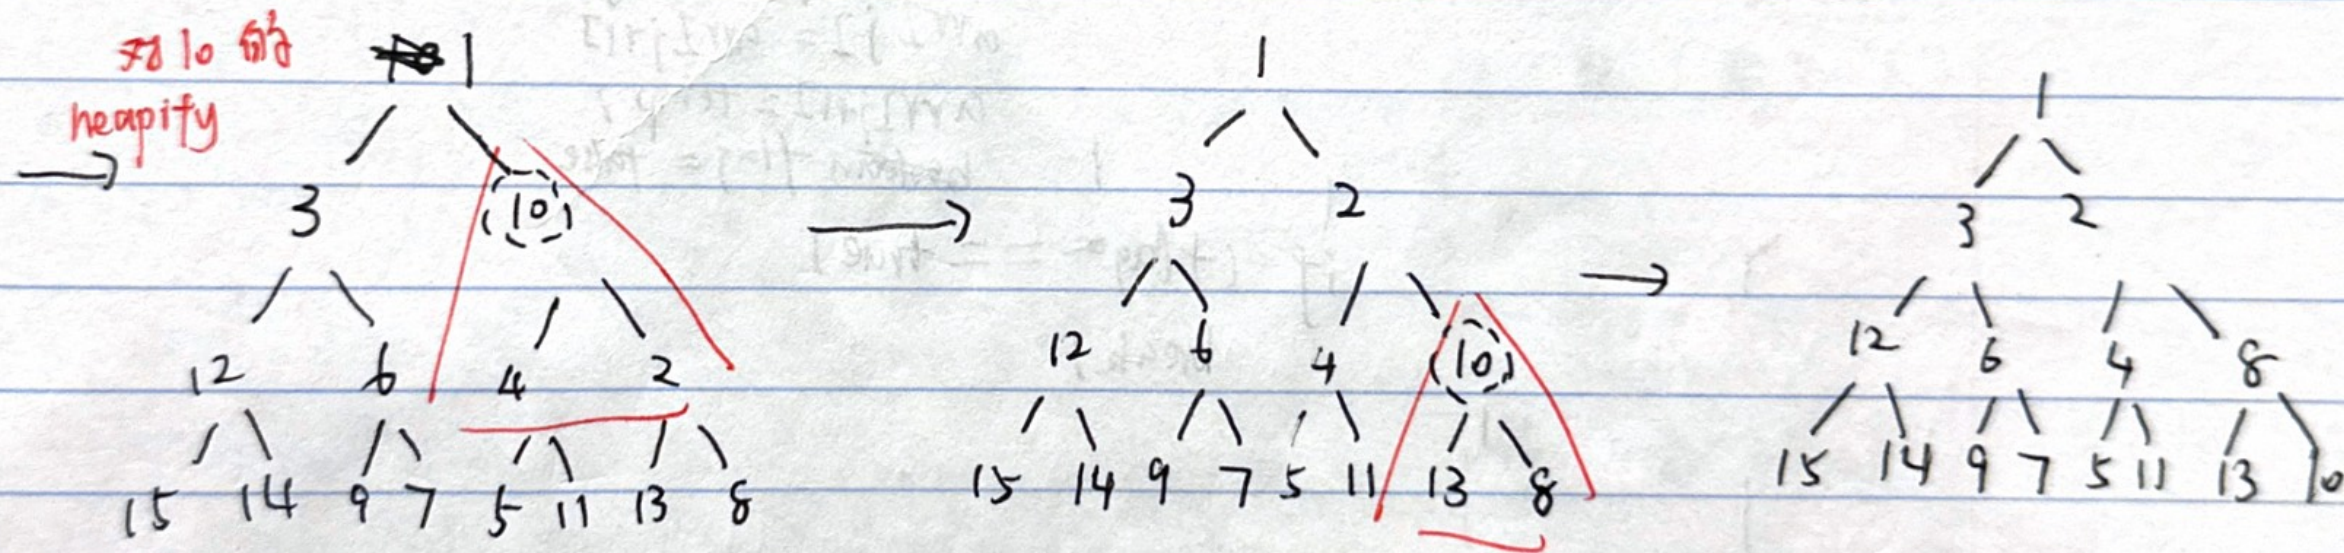 对10的
heapify
1
3 10
12 6 4 2
15 14 9 7 5 11 13 8
1
3 2
12 6 4 10
15 14 9 7 5 11 13 8
1
3 2
12 6 4 8
15 14 9 7 5 11 13 10